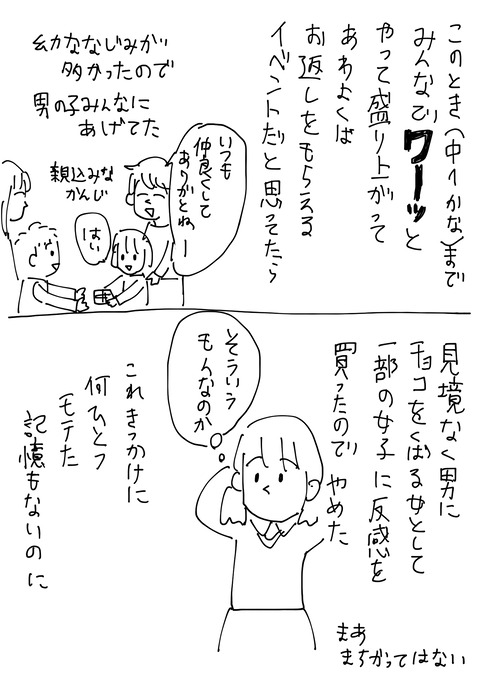 このとき(中1かな)まで
みんなでワーッと
やって盛り上がって
あわよくば
お返しをもらえる
イベントだと思ってたら
幼ななじみが
多かったので
男の子みんなに
あげてた
いつも
仲良くして
ありがとねー
親込みな
かんじ
はい
見境なく男に
チョコをくばる女として
一部の女子に反感を
買ったので やめた
そういう
もんなのか
これきっかけに
何ひとつ
モテた
記憶もないのに
まあ
まちがってはない